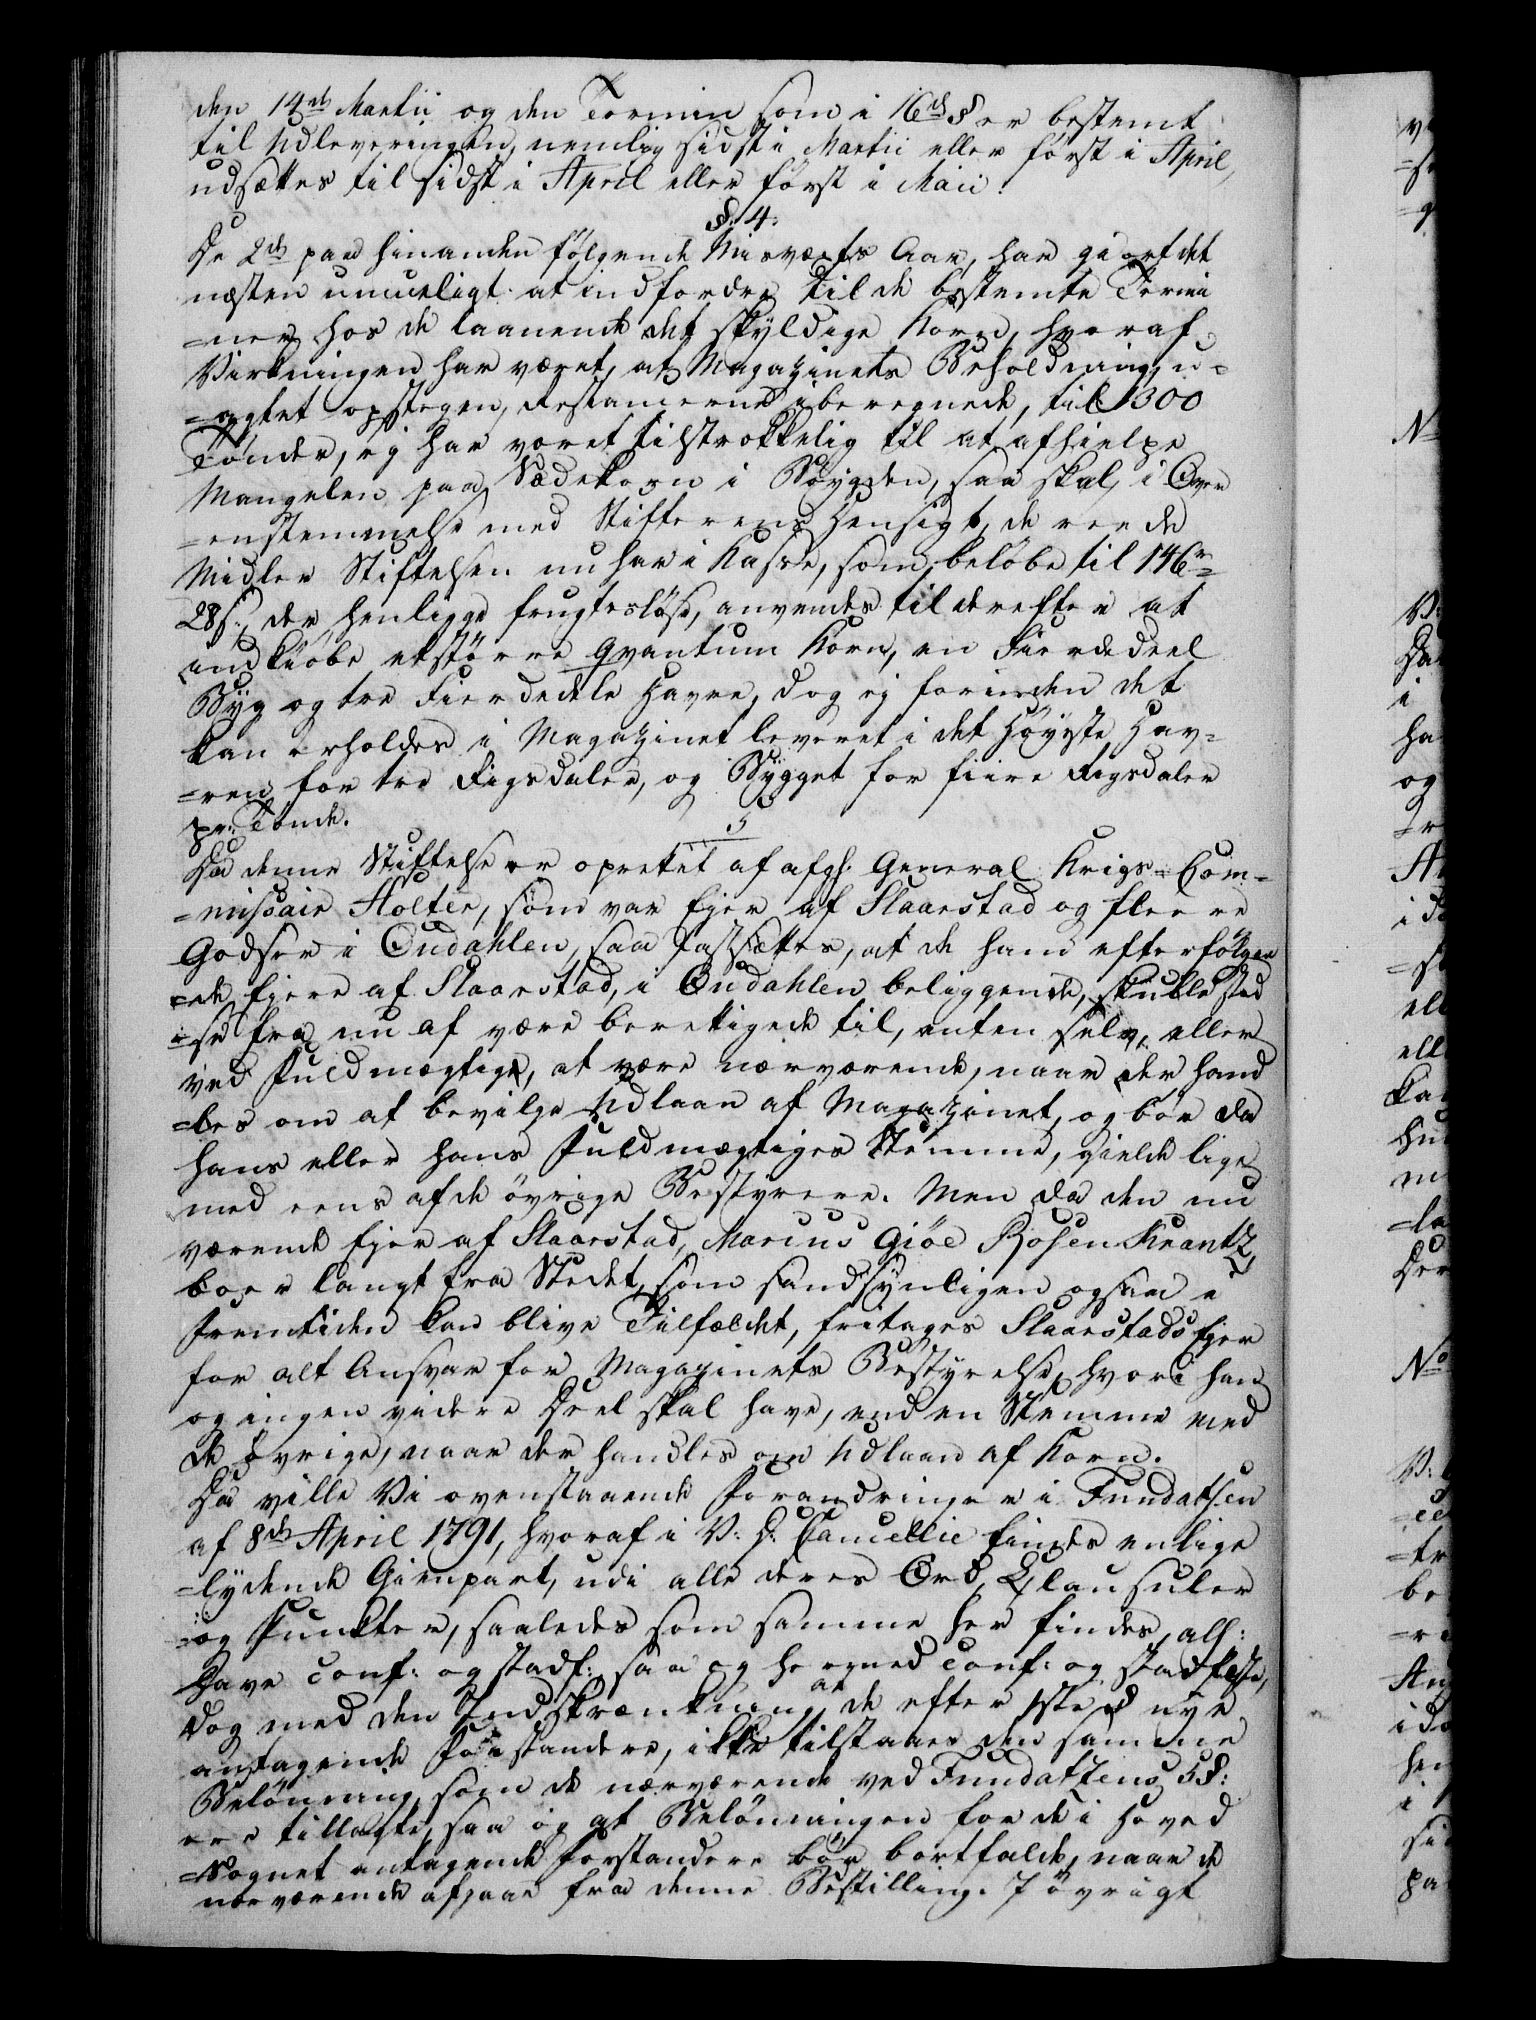 den 14de Martii og den Termin som i 16de § er bestemt
til Udleveringen, nemlig sidst i Martii eller først i April,
udsættes til sidst i April eller først i Maii.
§. 4.
De 2de paa hinanden følgende Misvæxts Aar, har giort det
næsten umueligt at indfordre til de bestemte Termi
=ner hos de laanende det skyldige Korn, hvoraf
Virkningen har været, at Magazinets Beholdning, u=
=agtet opstegen, Restancerne iberegnede, til 1300
Tønder, ej har været tilstrækkelig til at afhielpe
Mangelen paa Sædekorn i Bøygden, saa skal, i Over
=enstemmelse med Stifterens Hensigt, de reede
Midler Stiftelsen nu har i Kasse, som beløbe til 146r=
28s:, der henligge frugtesløse, anvendes til derefter at
indkiøbe et større Qvantum Korn, en Fierdedeel
Byg og tre Fierdedele Havre, dog ej forinden det
kan erholdes i Magazinet leveret i det Høyeste Hav=
=ren for tre Rigsdaler, og Bygget for fiire Rigsdaler
pr: Tønde.
5
Da denne Stiftelse er oprettet af afg: General Krigs=Com=
=missair Holter, som var Ejer af Slaarstad og fleere
Godser i Oudahlen, saa fastsættes, at de ham efterfølgen
=de Ejere af Slaarstad, i Oudahlen beliggende, skulle sted
=se fra nu af være berettigede til, enten selv, eller
ved Fuldmægtige, at være nærværende, naar der hand
=les om at bevilge Udlaan af Magazinet, og bør da
hans eller hans Fuldmægtiges Stemme, gielde lige
med eens af de øvrige Bestyrere. Men da den nu
værende Ejer af Slaarstad, Marius Giöe Rosenkrantz,
boer langt fra Stedet, som sandsynligen ogsaa i
Fremtiden kan blive Tilfældet, fritages Slaarstads Ejer
for alt Ansvar for Magazinets Bestyrelse, hvori han
og ingen videre Deel skal have, end en Stemme med
de øvrige, naar der handles om Udlaan af Korn.
Da ville Vi ovenstaaende Forandringer i Fundatsen
af 8de April 1791, hvoraf i V: D: Cancellie findes en lige
=lydende Gienpart, udi alle deres Ord, Clausuler
=og Punkter, saaledes som samme her findes, all:
have conf: og stadf:, saa og hermed conf: og stadfæste,
Dog med den Indskrænkning, at de efter 1ste § nye
antagende Forstandere, ikke tilstaaes den samme
Belønning, som de nærværende ved Fundatzens 5 §:
ere tillagte, saa og at Belønningen for de i Hoved
=Sognet antagende Forstandere bør bortfalde, naar de
nærværende afgaae fra denne Bestilling. I øvrigt